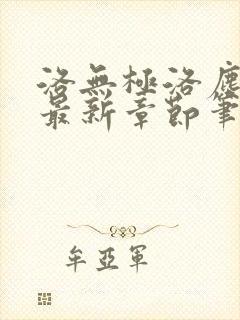 洛無極洛塵
最新章節筆
牟亞軍